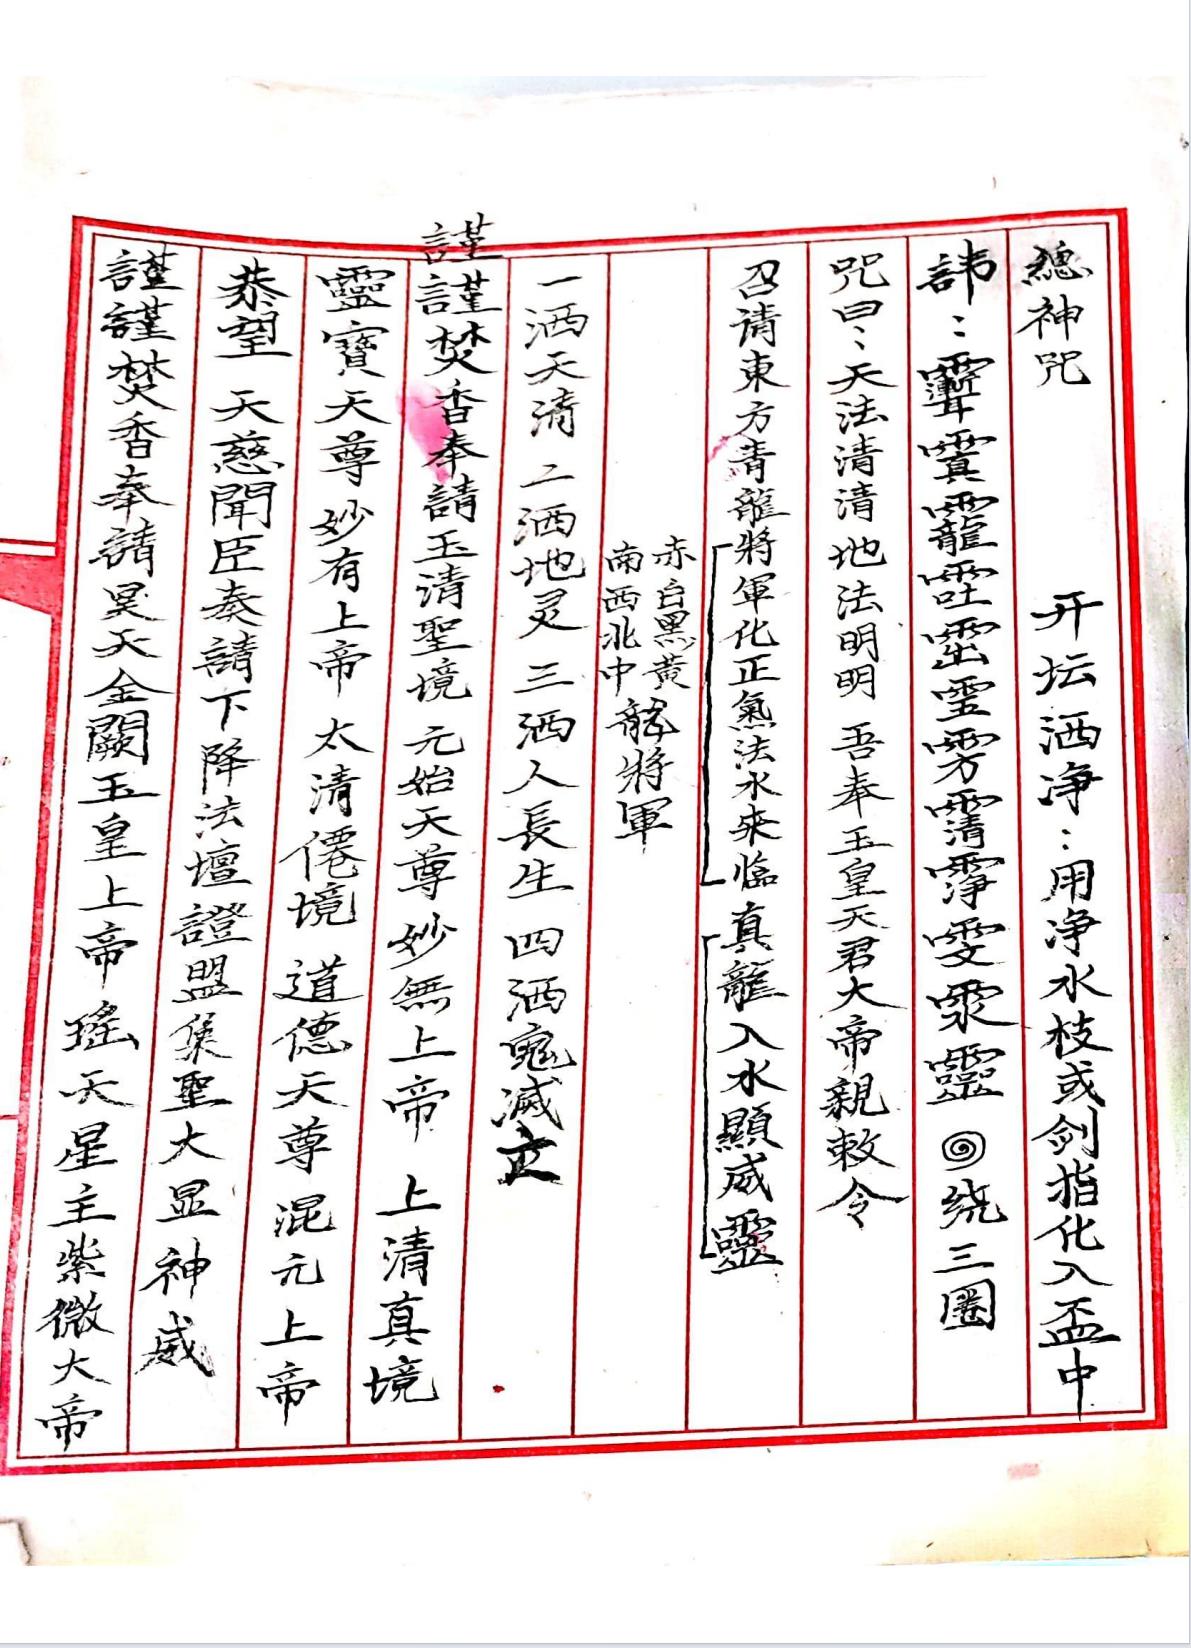 總神咒 开坛洒净：用净水枝或剑指化入盃中
諱：靈 绕三圈
咒曰：天法清清地法明明 吾奉玉皇天君大帝親敕令
召请東方青龍將軍化正氣法水來临真龍入水顯威靈
赤白黑黄
南西北中龍將軍
一洒天清 二洒地灵 三洒人長生 四洒鬼滅亡
謹謹焚香奉請玉清聖境元始天尊妙無上帝 上清真境
靈寶天尊妙有上帝 太清僊境道德天尊混元上帝
恭望 天慈聞臣奏請下降法壇證盟集聖大显神威
謹謹焚香奉請昊天金闕玉皇上帝瑤天星主紫微大帝